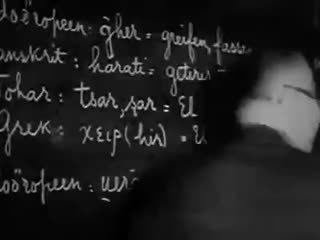 doöropeen: ĝher = greifen, fasse
anskrit : harati = getirer
Tohar : tsar, ṣar = El
Grek : χειρ (hir) = E
doöropeen : u̯er